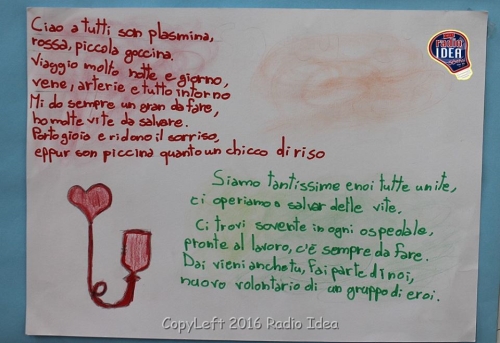 Ciao a tutti son plasmina,
rossa, piccola goccina.
Viaggio molto notte e giorno,
vene, arterie e tutto intorno
Mi do sempre un gran da fare,
ho molte vite da salvare.
Porto gioia e ridono il sorriso,
eppur son piccina quanto un chicco di riso
radio
IDEA
Siamo tantissime e noi tutte unite,
ci operiamo a salvar delle vite.
Ci trovi sovente in ogni ospedale,
pronte al lavoro, c'è sempre da fare.
Dai vieni anche tu, fai parte di noi,
nuovo volontario di un gruppo di eroi.
CopyLeft 2016 Radio Idea